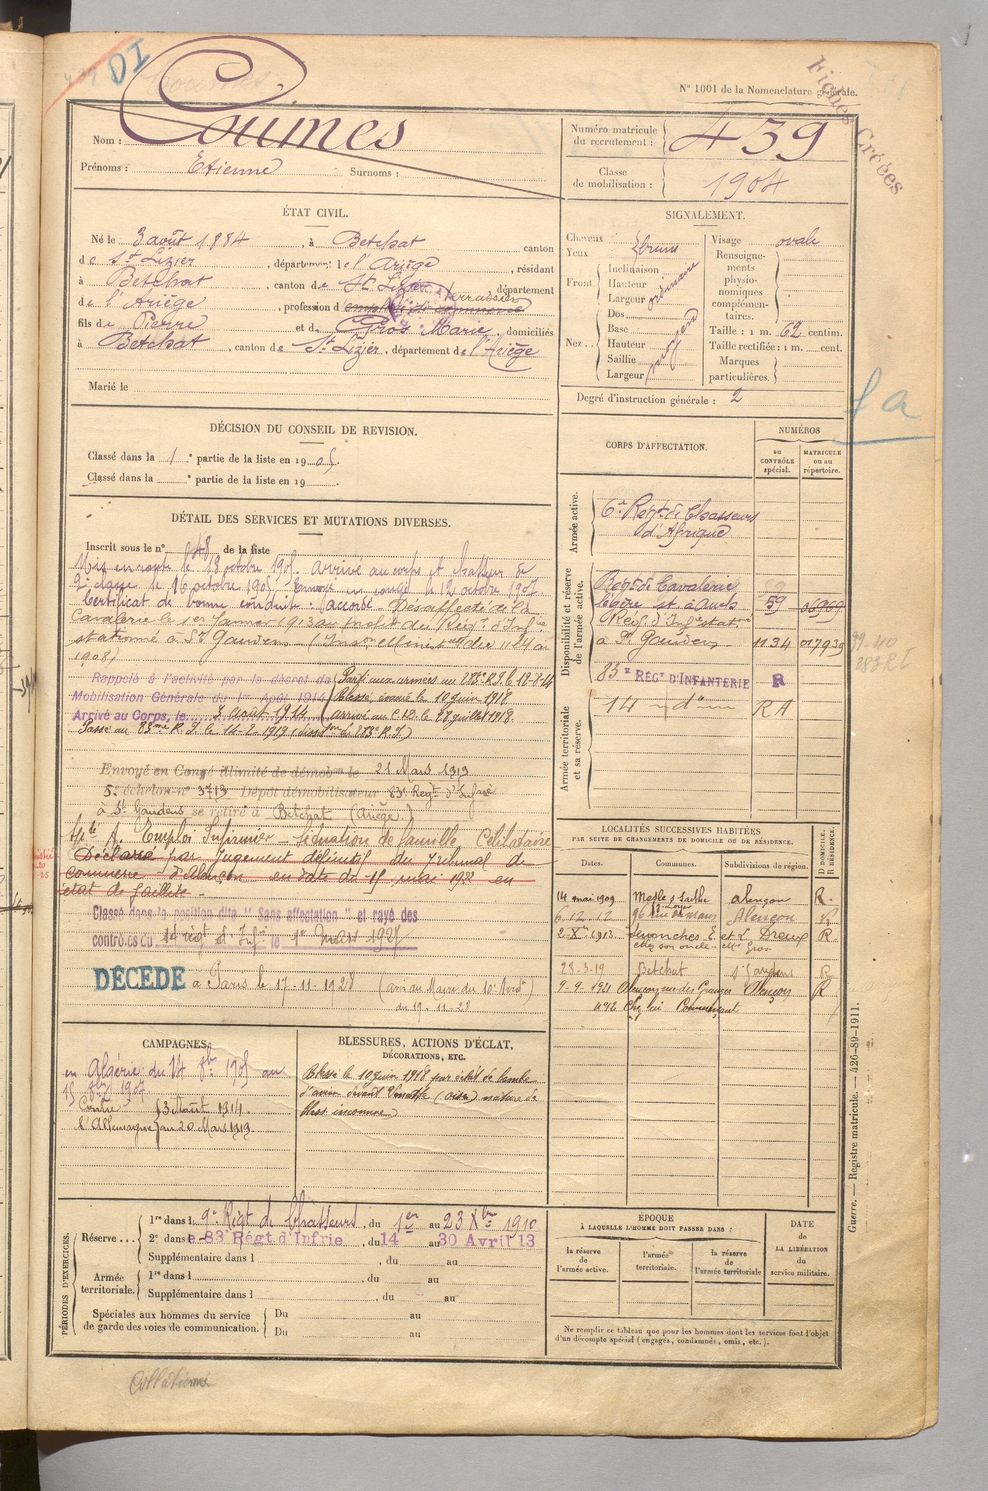 DI
N° 1001 de la Nomenclature générale.
Fiches Créées
Nom : Coumes
Prénoms : Etienne Surnoms :
Numéro matricule du recrutement : 439
Classe de mobilisation : 1904
ÉTAT CIVIL.
Né le 3 août 1884, à Betchat canton
de St Lizier, département de l'Ariège, résidant
à Betchat, canton de St Lizier, département
de l'Ariège, profession d employé de commerce terrassier
fils de Pierre et de Gros Marie, domiciliés
à Betchat, canton de St Lizier, département de l'Ariège
Marié le
SIGNALEMENT.
Cheveux bruns
Yeux
Front Inclinaison
Hauteur ordinaire
Largeur
Nez Dos
Base
Hauteur
Saillie
Largeur
Visage ovale
Renseignements physionomiques complémentaires.
Taille : 1 m. 62 centim.
Taille rectifiée : 1 m. cent.
Marques particulières.
Degré d'instruction générale : 2
DÉCISION DU CONSEIL DE REVISION.
Classé dans la 1e partie de la liste en 1905.
Classé dans la e partie de la liste en 19
DÉTAIL DES SERVICES ET MUTATIONS DIVERSES.
Inscrit sous le n° 48 de la liste
Mis en route le 13 octobre 1905. Arrivé au corps et chasseur de
2e classe le 16 octobre 1905. Envoyé en congé le 12 octobre 1907
Certificat de bonne conduite : accordé. Désaffecté de la
Cavalerie le 1er Janvier 1913 au profit du Régt d'Infie
stationné à St Gaudens
1908)
Rappelé à l'activité par le décret de
Mobilisation Générale du 1er Août 1914
Arrivé au Corps, le 3 août 1914
Parti aux armées au 283e R.I. le 12-8-14
Blessé, évacué le 10 juin 1918
arrivé au C.I.D. le 28 juillet 1918.
Passé au 83me R.I. le 14-2-1919 (dissolon du 283e R.I.)
Envoyé en Congé illimité de démobon le 21 Mars 1919
5e échelon n° 3713 Dépôt démobilisateur 83e Régt d'Infie
à St Gaudens se retire à Betchat (Ariège.)
Emploi Infirmier - situation de famille Célibataire
Déclaré par jugement définitif du Tribunal de
commerce d'Alençon en date du mai 1922 en
état de faillite
Classé dans la position dite "Sans affectation" et rayé des
contrôles du régt d'Infie le 1er Mars 1927
DÉCÉDÉ à Paris le 17-11-1928 (avis du Maire du 10e Arrdt)
du 19-11-28
CORPS D'AFFECTATION.
NUMÉROS
au CONTRÔLE spécial.
MATRICULE ou au répertoire.
Armée active.
6e Régt de Chasseurs
d'Afrique
Disponibilité et réserve de l'armée active.
Régt de Cavalerie
légère
59 06969
Rég. d'Infie stat.né
à St Gaudens 1134 017939
283 RI
83e RÉGt D'INFANTERIE R
14 - d° - RA
Armée territoriale et sa réserve.
LOCALITÉS SUCCESSIVES HABITÉES
PAR SUITE DE CHANGEMENTS DE DOMICILE OU DE RÉSIDENCE.
Dates. Communes. Subdivisions de région. D DOMICILE. R RÉSIDENCE.
14 mai 1909 Mesle s Sarthe Alençon R.
6.12.12 Alençon R
2-Xbre 1913 et L Dreux R.
chez son oncle Mr Gros
28-3-19 Betchat St Gaudens
9-9-1921 Alençon rue des Granges Alençon R
chez lui Commerçant
CAMPAGNES.
en Algérie du 14 8bre 1905 au
15 8bre 1907
Contre l'Allemagne
3 Août 1914.
au 20 Mars 1919.
BLESSURES, ACTIONS D'ÉCLAT,
DÉCORATIONS, ETC.
Blessé le 10 juin 1918 par éclat de bombe
d'avion devant (Oise) nature de
bless. inconnue)
PÉRIODES D'EXERCICES.
Réserve 1re dans l 9e Régt de Chasseurs, du 1er au 23 Xbre 1910
2e dans le 83 Régt d'Infrie, du 14 au 30 Avril 13
Supplémentaire dans l , du au
Armée territoriale. 1re dans l , du au
Supplémentaire dans l , du au
Spéciales aux hommes du service de garde des voies de communication. Du au
Du au
ÉPOQUE
À LAQUELLE L'HOMME DOIT PASSER DANS :
la réserve de l'armée active.
l'armée territoriale.
la réserve de l'armée territoriale
DATE de LA LIBÉRATION du service militaire.
Ne remplir ce tableau que pour les hommes dont les services font l'objet
d'un décompte spécial (engagés, condamnés, omis, etc.).
Guerre. — Registre matricule. — 426-89-1911.